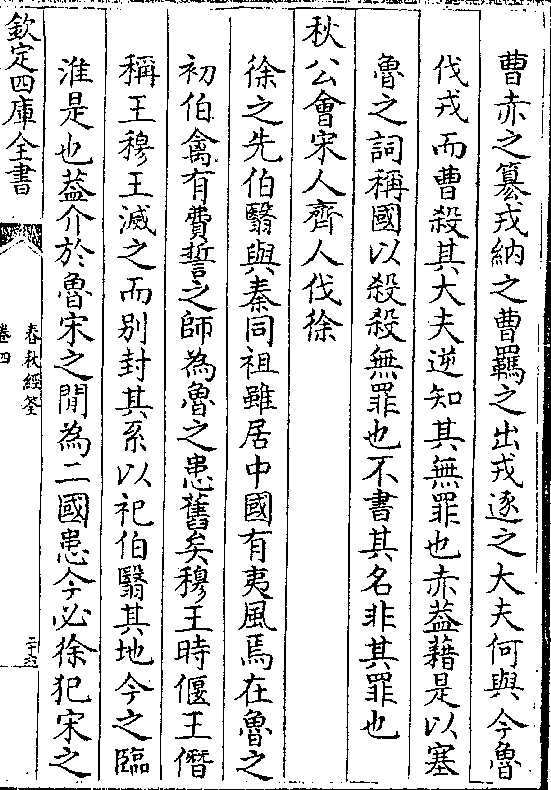 曹赤之簒戎納之曹羈之出戎逐之大夫何與今魯
伐戎而曹殺其大夫逆知其無罪也赤葢藉是以塞
魯之詞稱國以殺殺無罪也不書其名非其罪也
秋公會宋人齊人伐徐
徐之先伯翳與秦同祖雖居中國有夷風焉在魯之
初伯禽有費誓之師為魯之患舊矣穆王時偃王僭
稱王穆王滅之而别封其系以祀伯翳其地今之臨
淮是也葢介於魯宋之閒為二國患今必徐犯宋之
欽定四庫全書
春秋經筌
卷四